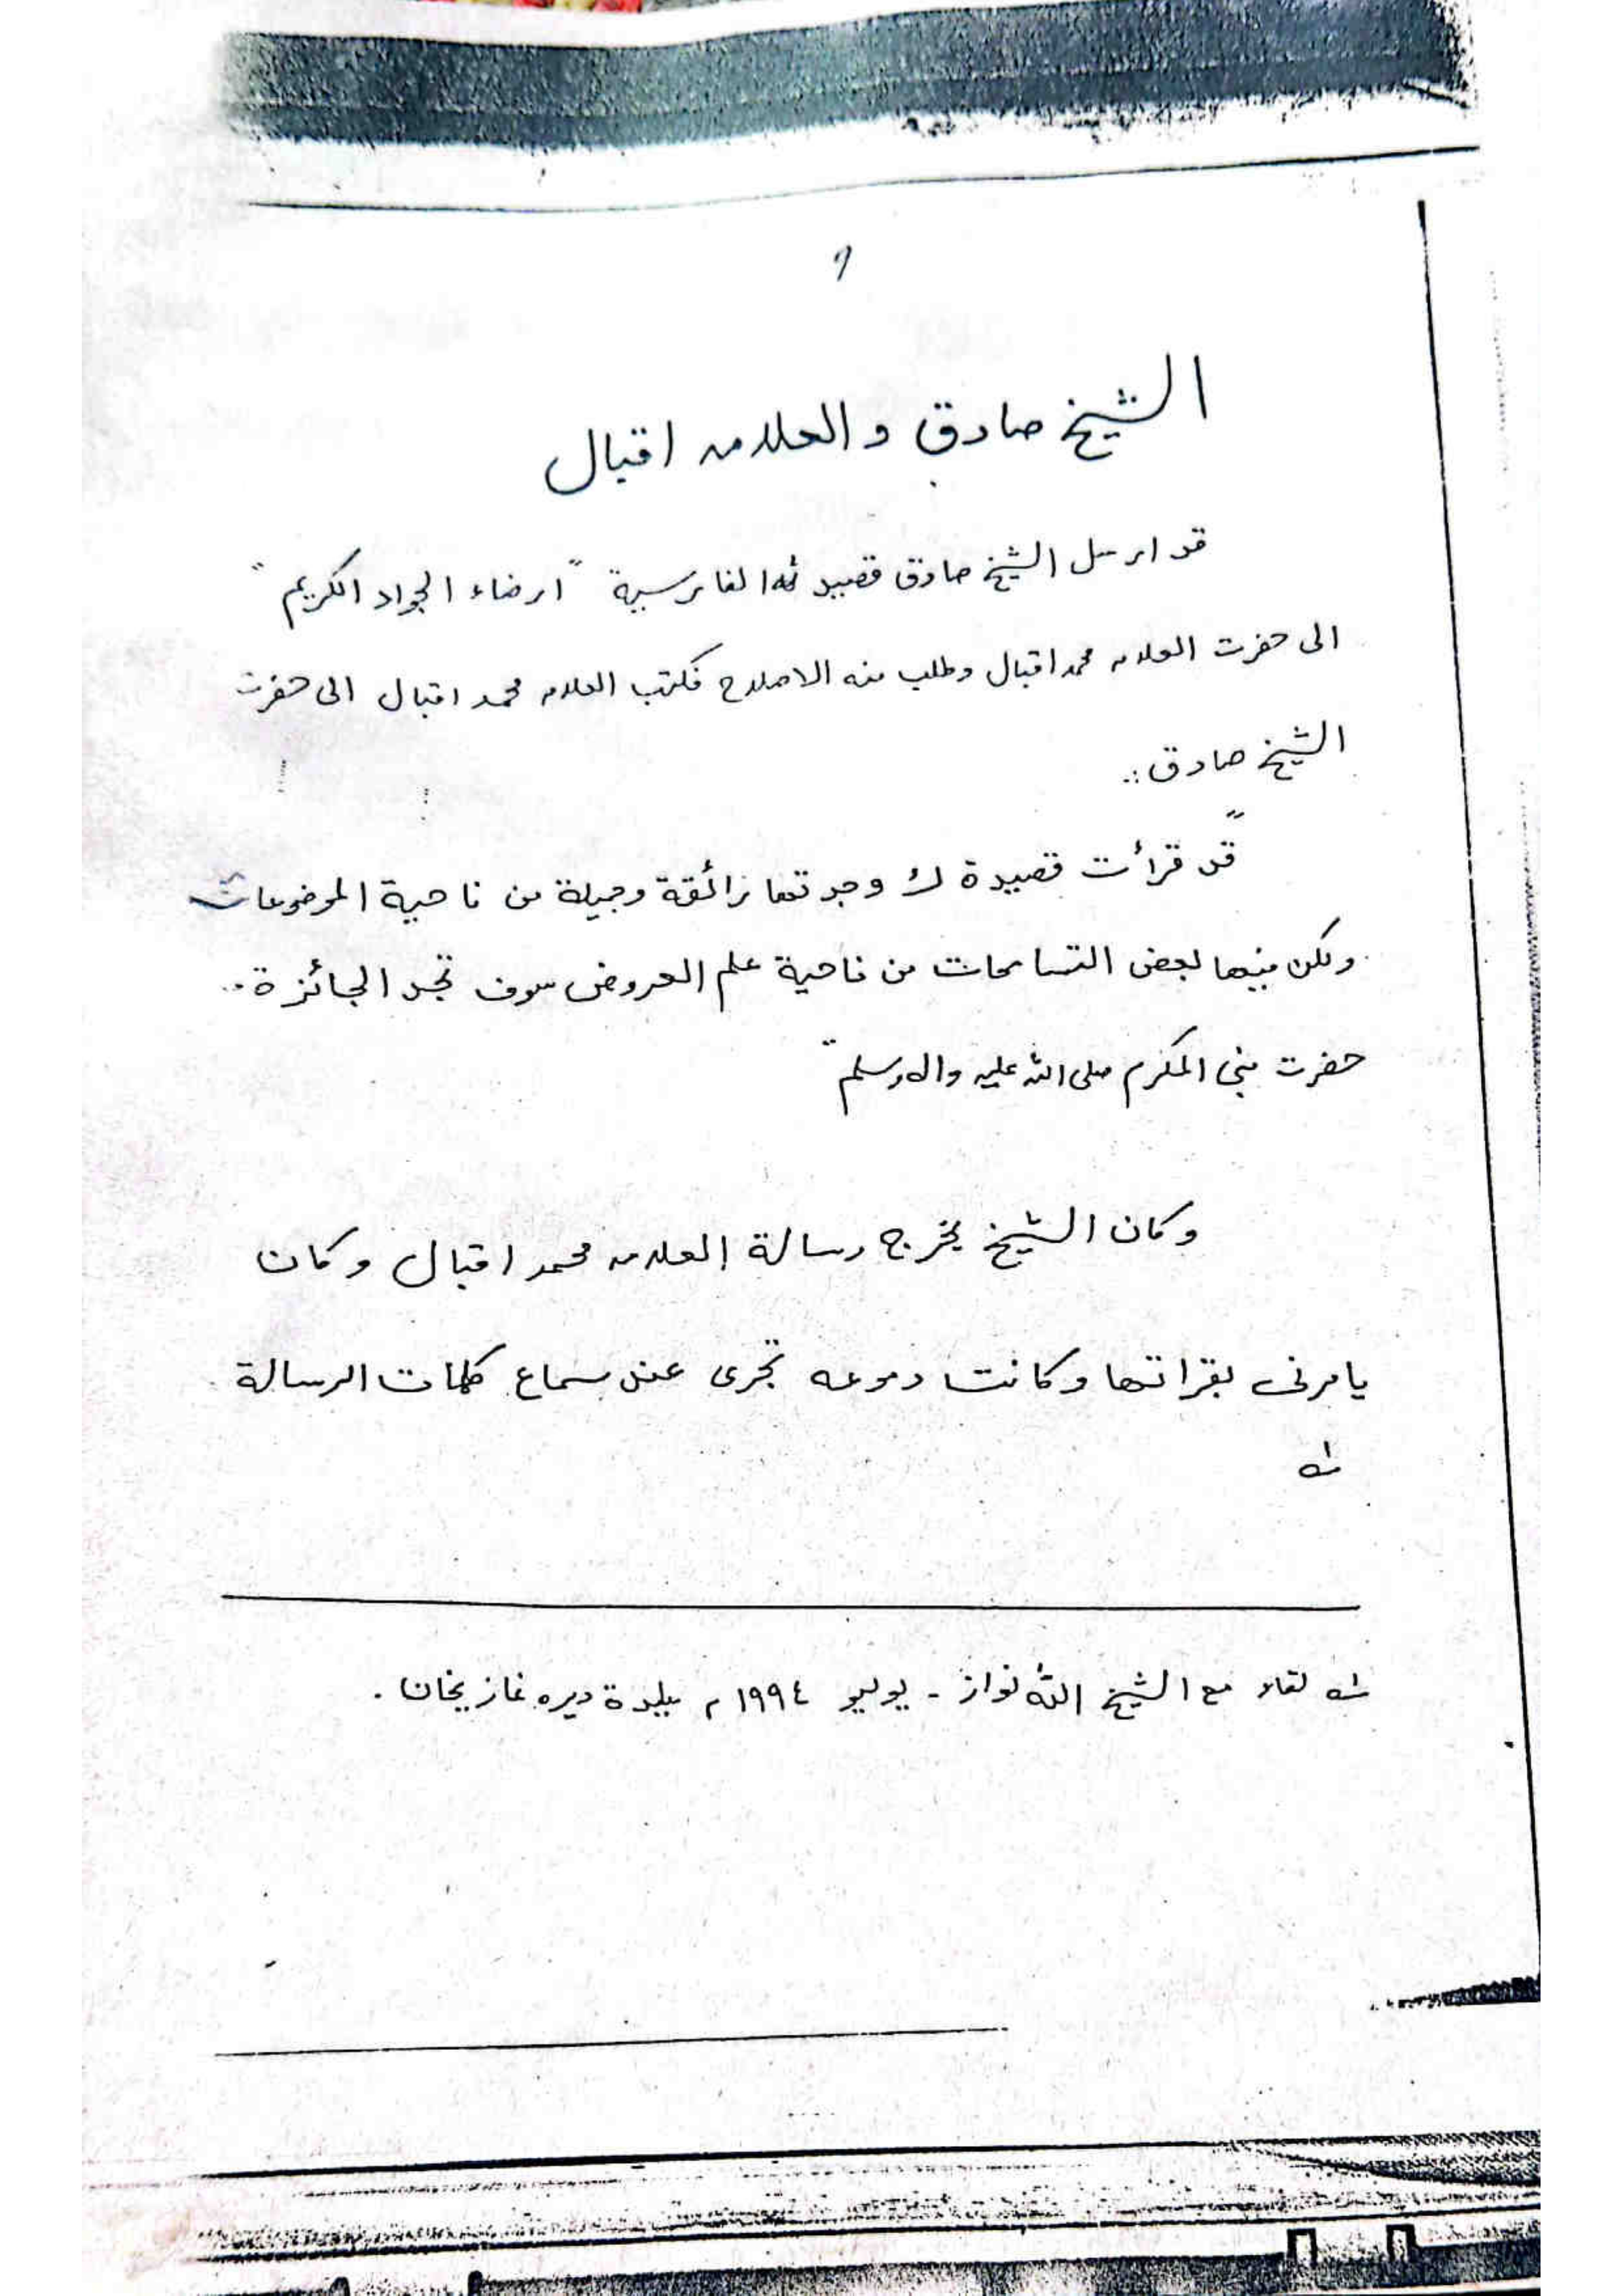 و
الشيخ صادق و العلامہ اقبال
قد ارسل الشيخ صادق قصيدته الفارسية "ارضاء الجواد الكريم"
الى حضرت العلامہ محمد اقبال وطلب منه الاصلاح فكتب العلامہ محمد اقبال الى حضرت
الشيخ صادق :.
"قد قرأت قصيدة لك وجدتها رائقة وجميلة من ناحية الموضوعات
ولكن فيها بعض التسامحات من ناحية علم العروض سوف تجد الجائزة من
حضرت نبي المكرم صلى الله عليه واله وسلم"
وكان الشيخ يخرج رسالة العلامہ محمد اقبال وكان
يامرنى بقراتها وكانت دموعه تجرى عند سماع كلمات الرسالة
لـه
لـه لقاء مع الشيخ الله نواز - يوليو ١٩٩٤م ببلدة ديره غازيخان .